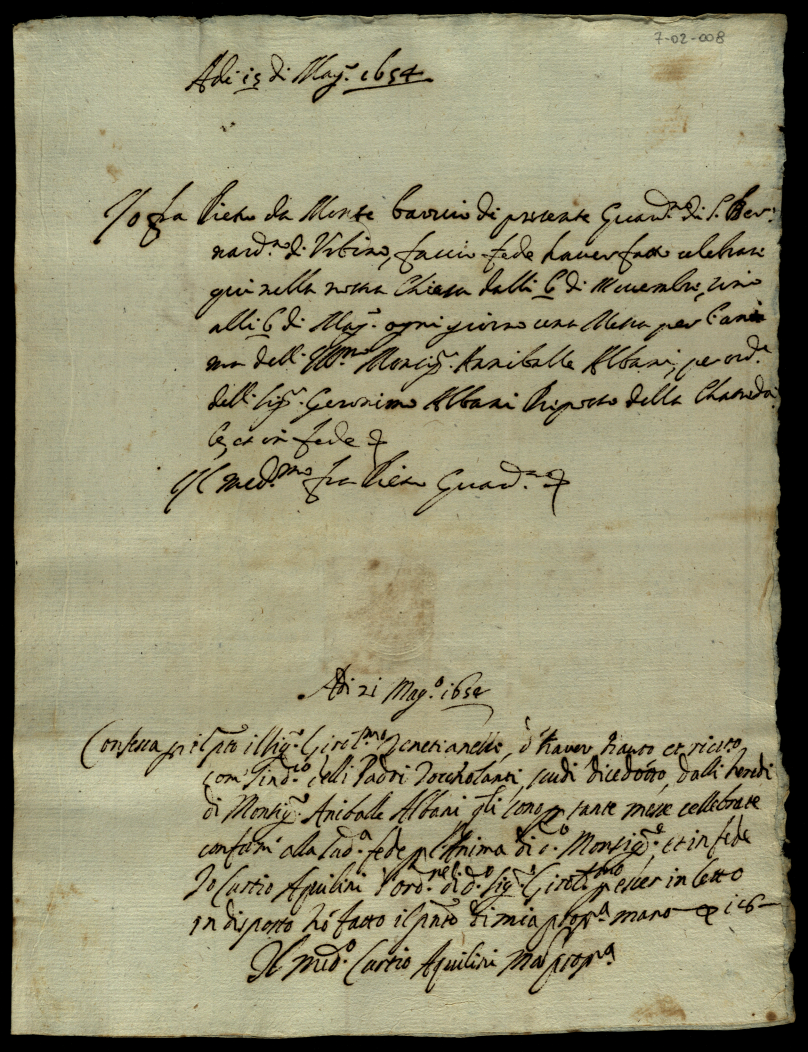 7-02-008
Adi 15 di Mag.º 1654
Io fra Pietro da Monte Baroccio di presente Guard.no di S. Ber:
nard.no di Urbino, faccio fede haver fatto celebrare
qui nella nostra Chiesa dalli 6 di Novembre, sino
alli 6 di Mag.º ogni giorno una Messa per l'ani
ma dell' Ill.mo Monsig.r Annibale Albani, per ord.e
dell' Sig.r Geronimo Albani Preposto della Chatreda
le, et in fede
Il med.mo fra Pietro Guard.no
Adi 21 Mag.º 1654
Confessa p il pnte il Sig.r Girol.mo Venetianelli, d'haver hauto et riceuto
com Sind.co delli Padri Zoccholanti, scudi dicedotto, dalli heredi
di Monsig.r Aniballe Albani q.li sono p tante messe cellebrate
conforme alla sud.a fede p l'Anima di d.º Monsig.r, et in fede
Io Curtio Aquilini d'ord.ne di d.º Sig.r Girol.mo p esser in letto
indisposto hò fatto il pnte di mia prop.a mano
Il med.º Curtio Aquilini Mao prop.a